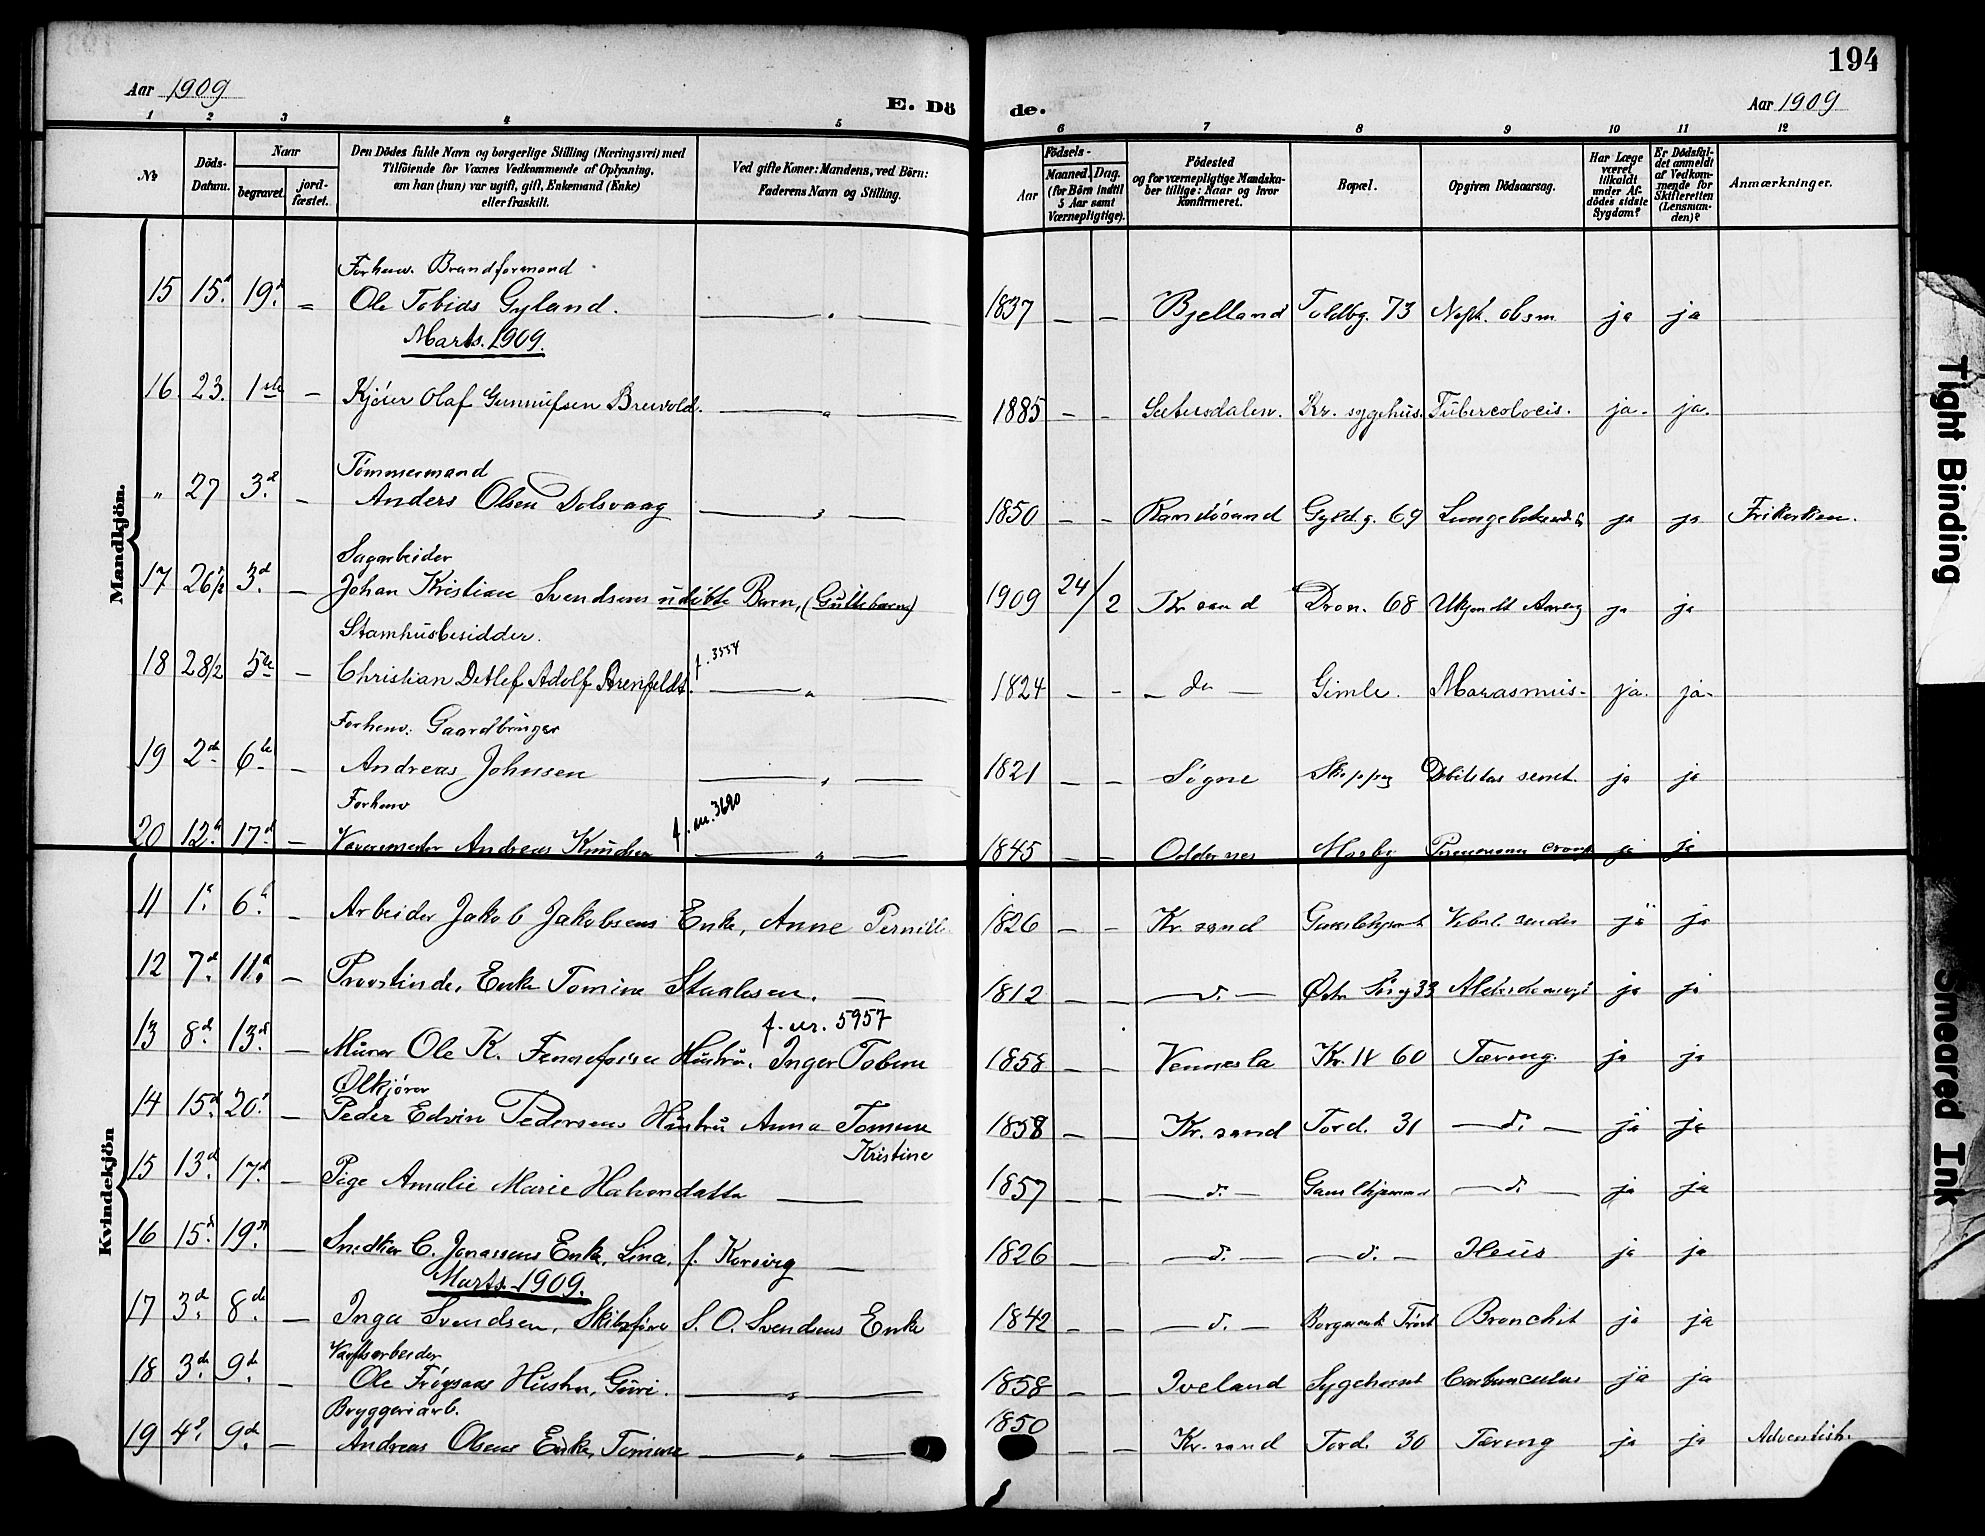 194
Aar 1909
E. Dö
de.
Aar 1909
1 2 3 4 5 6 7 8 9 10 11 12
No
Döds-Datum.
Naar
begravet.
jord-fæstet.
Den Dödes fulde Navn og borgerlige Stilling (Næringsvei) med
Tilföiende for Voxnes Vedkommende af Oplysning,
om han (hun) var ugift, gift, Enkemand (Enke)
eller fraskilt.
Ved gifte Koner: Mandens, ved Börn:
Faderens Navn og Stilling.
Födsels-
Aar
Maaned. Dag.
(for Börn indtil
5 Aar samt
Værnepligtige).
Födested
og for værnepligtige Mandska-
ber tillige: Naar og hvor
konfirmeret.
Bopæl.
Opgiven Dödsaarsag.
Har Læge
været
tilkaldt
under Af-
dödes sidste
Sygdom?
Er Dödsfal-
det anmeldt
af Vedkom-
mende for
Skifteretten
(Lensman-
den)?
Anmærkninger.
Mandkjön.
Forhenv. Brandformand
15 15d. 19d. Ole Tobias Gyland. — " — 1837 — — Bjelland Toldbg. 73 ja ja
Marts. 1909.
16. 23. 1ste — Kjører Olaf — " — 1885 — — Sætersdalen. Kr. sygehus. ja. ja.
Tømmermand
" 27 3d. — Anders Olsen Dolsvaag — " — 1850 — — Randøsund Gyld.g. 69 ja ja
Sagarbeider
17 26/2 3d — Johan Kristian Svendsens udøbte Barn, 1909 24/2 Kr.sand Dron. 68 Ukjendt ja ja
Stamhusbesidder.
18 28/2 5te — Christian Detlef Adolf Arenfeldt. f. 3554 — " — 1824 — — — do — Gimle. Marasmus ja. ja
Forhenv. Gaardbruger
19 2den 6te — Andreas Johnsen — " — 1821 — — Søgne ja ja
Forhenv
20 12te 17d. — Andreas Knudsen f. nr. 3690 — " — 1845 — — Oddernes Mosby ja ja
Kvindekjön
11 1ste 6te — Arbeider Jakob Jakobsens Enke, Anne 1826 — — Kr.sand ja ja
12 7d. 11te — Provstinde, Enke Tomine Staalesen. — 1812 — — — do. — ja ja
f. nr. 5957
13 8d. 13d. — Murer Ole K. Hustru, Inger 1858 — — Vennesla Kr. IV 60 Tæring. ja ja
Ølkjører
14 15d. 20. — Peder Edvin Pedersens Hustru Anna Tomine 1858 — — Kr.sand Tord. 31 — do. — ja ja
Kristine
15 13d. 17d. — Pige Amalie Marie — 1857 — — — do. — — do. — ja ja
16 15d. 19. — Snedker C. Jonassens Enke, Lina, f. Korsvig — 1826 — — — do. — — do. — Ileus ja ja
Marts 1909.
17 3d. 8de. — Inga Svendsen, Skibsfører S. O. Svendsens Enke 1842 — — — do. — Bronchit ja ja
Værftsarbeider
18 3de. 9de. — Ole Hustru, Guri. — " — 1858 — — Iveland Carbunculus ja ja
Bryggeriarb.
19 4. 9de. — Andreas Olsens Enke, Tomine — " — 1850 — — Kr.sand Tord. 30 Tæring ja ja Adventist.
Tight Binding
Smeared Ink